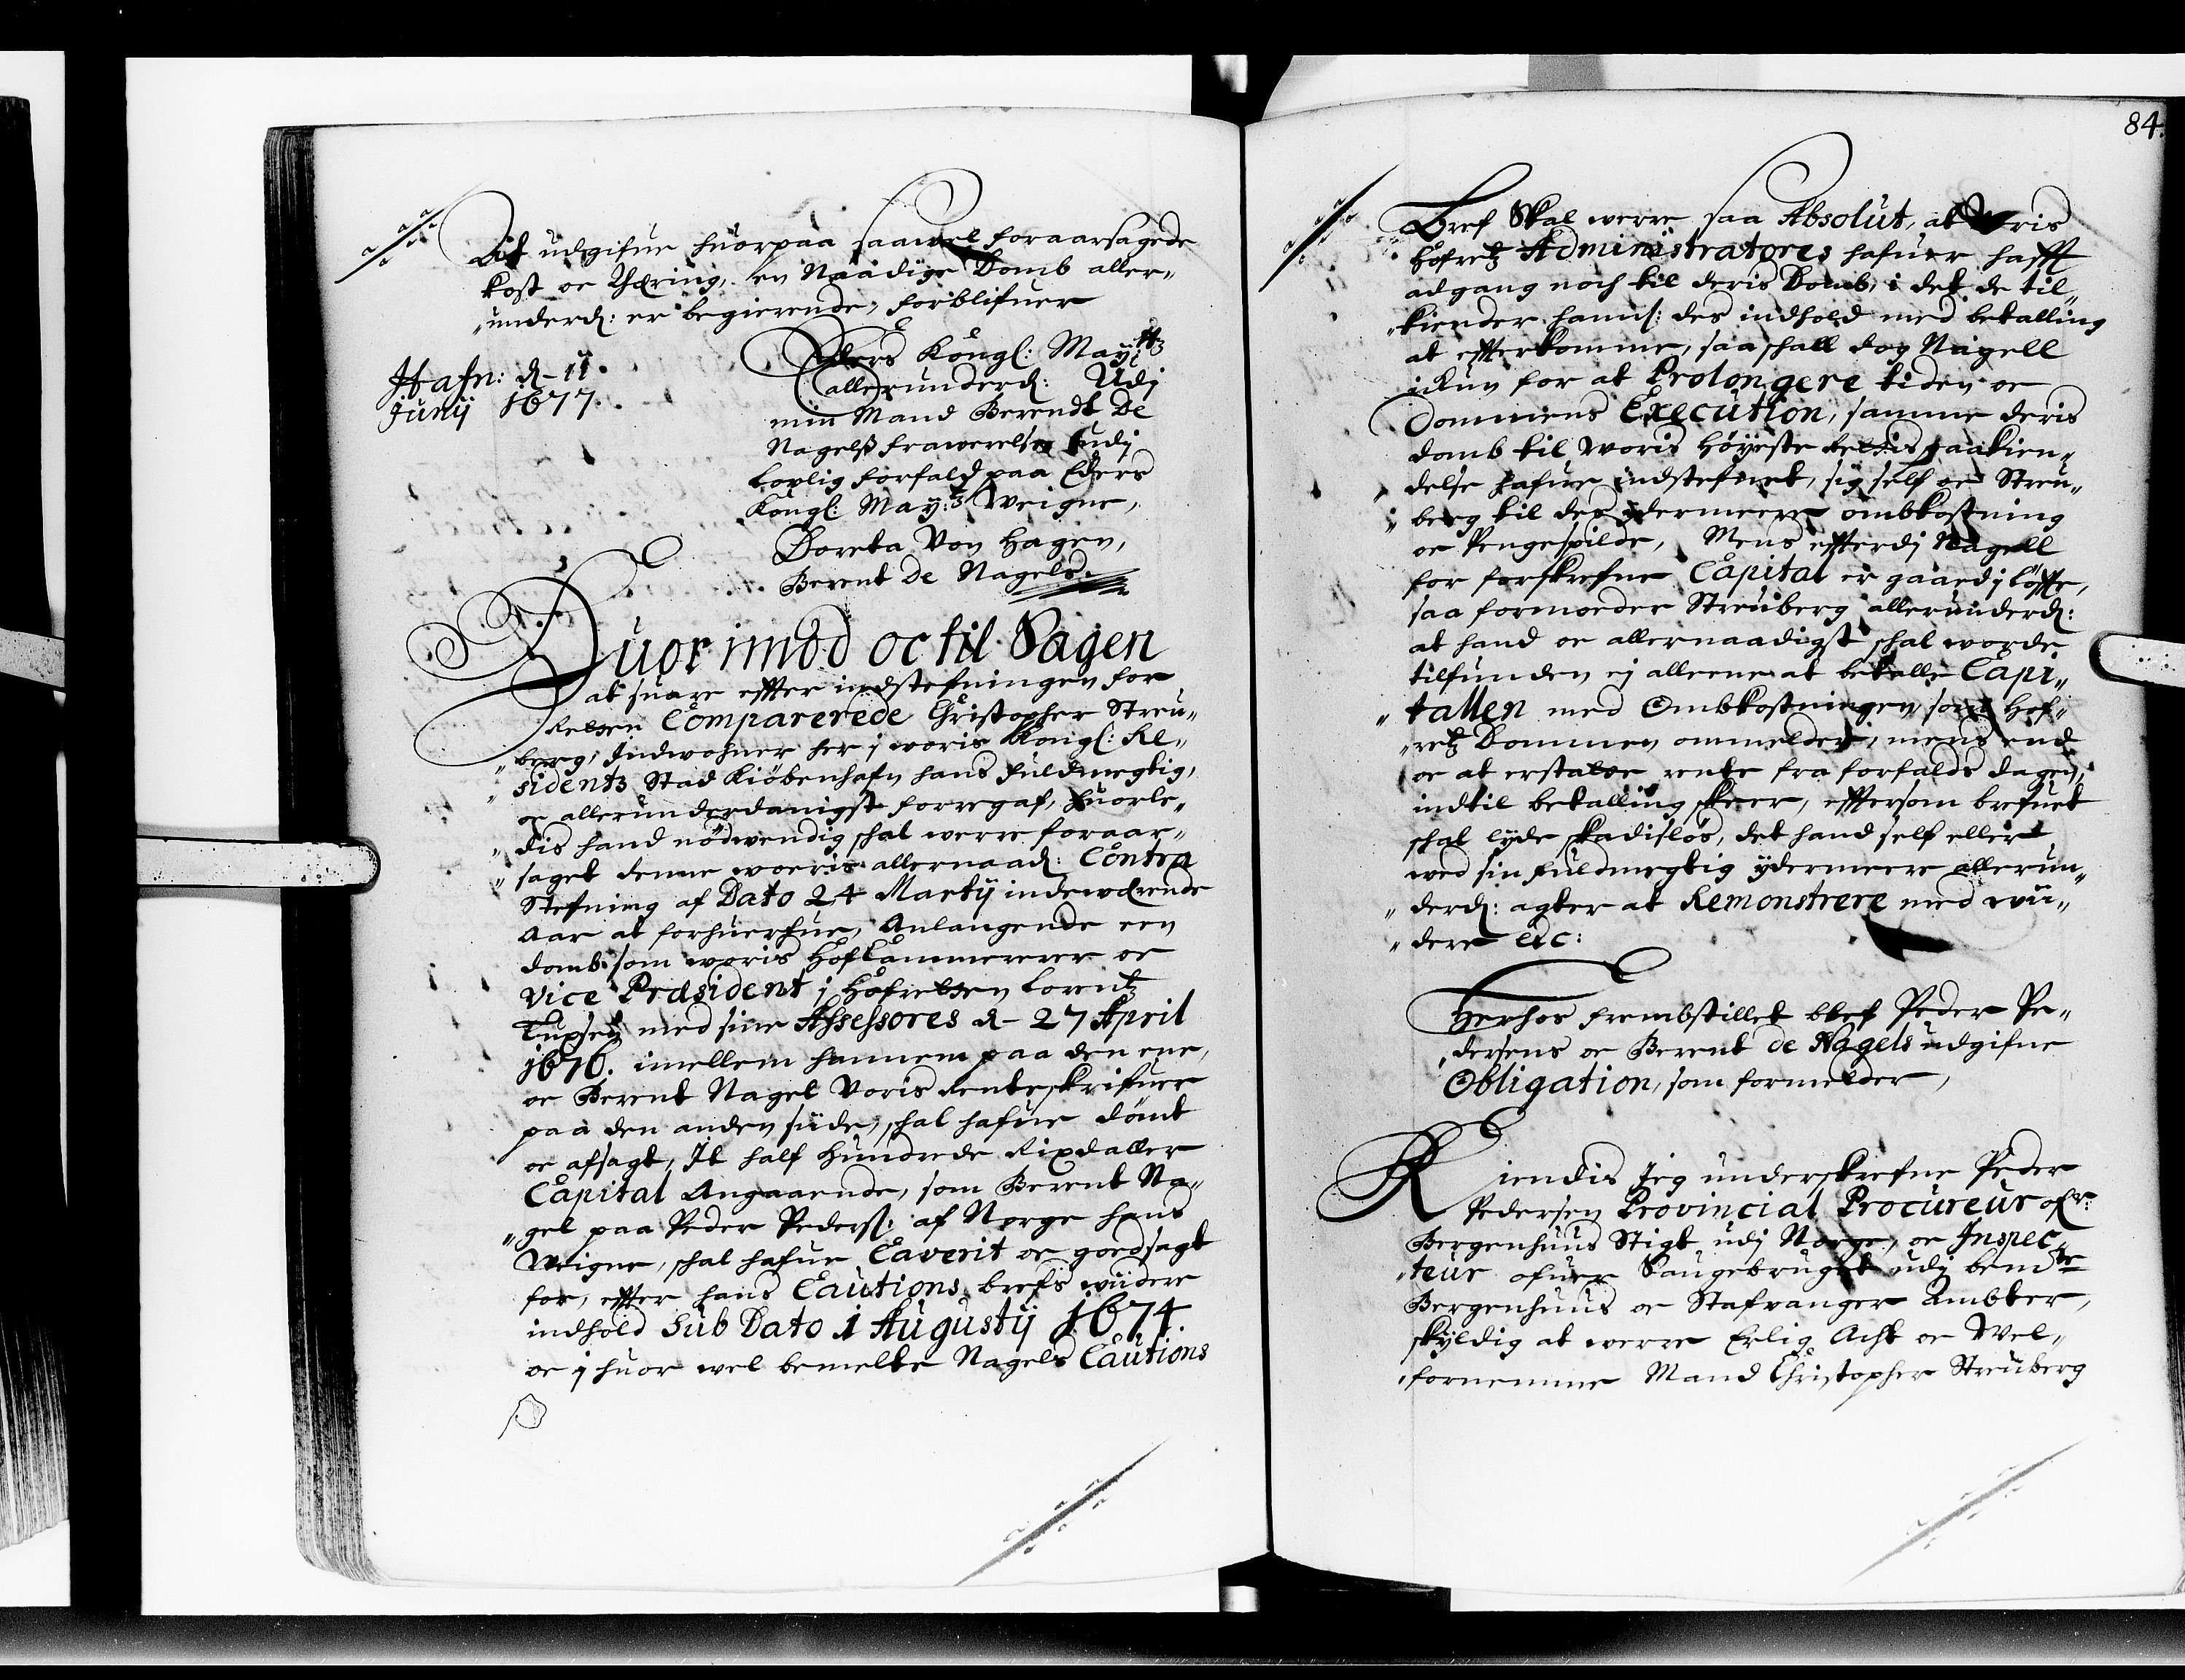 At udgifue huorpaa saawel foraarsagede
kost oc Thæring, en Naadige Domb aller„
„underd: er begierende, forblifuer
Eders Kongl: May:ttz
allerunderd: Udj
min Mand Berendt De
Nagelß frawerelse udj
Lovlig forfald paa Eders
Kongl: May:tz Weigne,
Doreta Von Hagen,
Berent De Nagels.
Hafn: d- 11.
Junij 1677.
Huor imod oc til Sagen
at suare effter indstefningen for
Retten Comparerede Christopher Streu„
„berg, Indwohner her j woris Kongl: Re„
„sidentz Stad Kiöbenhafn hans fuldmegtig,
oc allerunderdanigst forregaf, huorle„
„dis hand nödwendig schal werre foraar„
„saget denne woeris allernaad: Contra
Stefning af Dato 24 Martij indeværende
Aar at forhuerfue, Anlangende een
domb som woris Hof Cammererer oc
Vice Præsident j Hofretten Lorentz
Tuxsen med sine Assessores d- 27 April
1676. imellem hannem paa den ene,
oc Berent Nagel Voris Renteskrifuer
paa den anden siide, schal hafue dömt
oc afsagt, It half Hundrede Rixdaller
Capital Angaaende, som Berent Na„
„gel paa Peder Peders: af Norge hans
Weigne, schal hafue Caverit oc goedsagt
for, effter hans Cautions brefs wiidere
indhold Sub Dato 1 Augustij 1674.
oc j huor wel bemelte Nagels Cautions
84.
Bref Skal werre saa Absolut, at Woris
Hofretz Administratores hafuer hafft
adgang noch til deris Domb, i det de til„
„kiender hannß: des indhold med betalling
at efferkomme, saa schall dog Nagell
ickun for at Prolongere tiden oc
Dommens Execution, samme deris
domb til woris Höyeste Rettis paakien„
„delse hafue indstefnet, sig self oc Streu„
„berg til des ydermeere ombkostning
oc Pengespilde, Mens efterdj Nagell
for forskrefne Capital er gaaed j löffte,
saa formoeder Streuberg allerunderd:
at hand oc allernaadigst schal worde
tilfunden ej alleene at betalle Capi„
„tallen med Ombkostningen, som Hof„
„retz Dommen ommelder, mens end
oc at erstatte rente fra forfalds dagen,
indtil betalling skeer, effersom brefuet
schal lyde skadislös, det hand self eller
wed sin fuldmegtig ydermeere allerun„
„derd: agter at Remonstrere med wii„
„dere etc:
Herhos frembstillet blef Peder Pe„
„dersens oc Berent de Nagels udgifne
Obligation, som formelder,
Kiendis Jeg underskrefne Peder
Pedersen Provincial Procureur ofr:
Bergenhuus Stigt udj Norge, oc Inspec„
„teur ofuer Saugebruget udj bemte
Bergenhuus oc Stafvanger Ambter,
skyldig at werre Erlig Acht oc Wel„
„fornemme Mand Christopher Streuberg